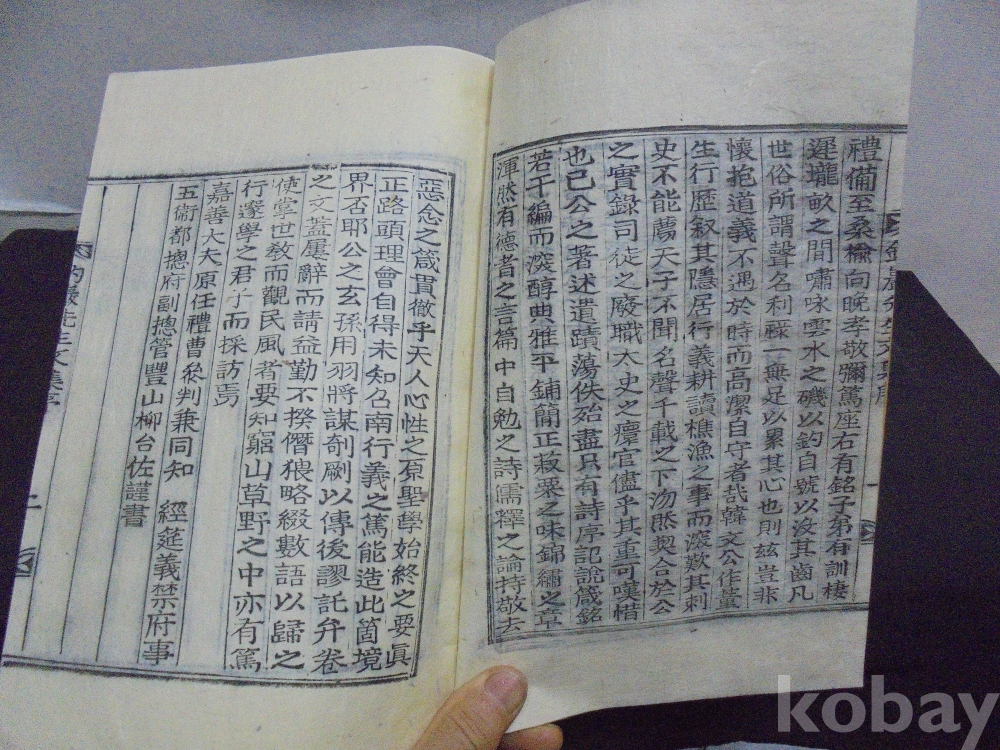 禮備至桑楡向晚孝敬彌篤座右有銘子弟有訓棲
遲壠畝之間嘯咏雲水之磯以釣自號以沒其齒凡
世俗所謂聲名利祿一無足以累其心也則玆豈非
懷抱道義不遇於時而高潔自守者哉韓文公作董
生行歷叙其隱居行義耕讀樵漁之事而深歎其刺
史不能薦天子不聞名聲千載之下沕然契合於公
之實錄司徒之廢職太史之瘝官儘乎其重可嘆惜
也已公之著述遺蹟蕩佚殆盡只有詩序記說箴銘
若干編而深醇典雅平鋪簡正菽粟之味錦繡之章
渾然有德者之言篇中自勉之詩儒釋之論持敬去
惡念之箴貫徹乎天人心性之原聖學始終之要眞
正路頭理會自得未知召南行義之篤能造此箇境
界否耶公之玄孫用羽將謀剞劂以傳後謬託弁卷
之文盖屢辭而請益勤不揆僭猥略綴數語以歸之
使掌世敎而觀民風者要知窮山草野之中亦有篤
行邃學之君子而採訪焉
嘉善大夫原任禮曹參判兼同知 經筵義禁府事
五衛都摠府副摠管豐山柳台佐謹書
先生文集序
二
kobay